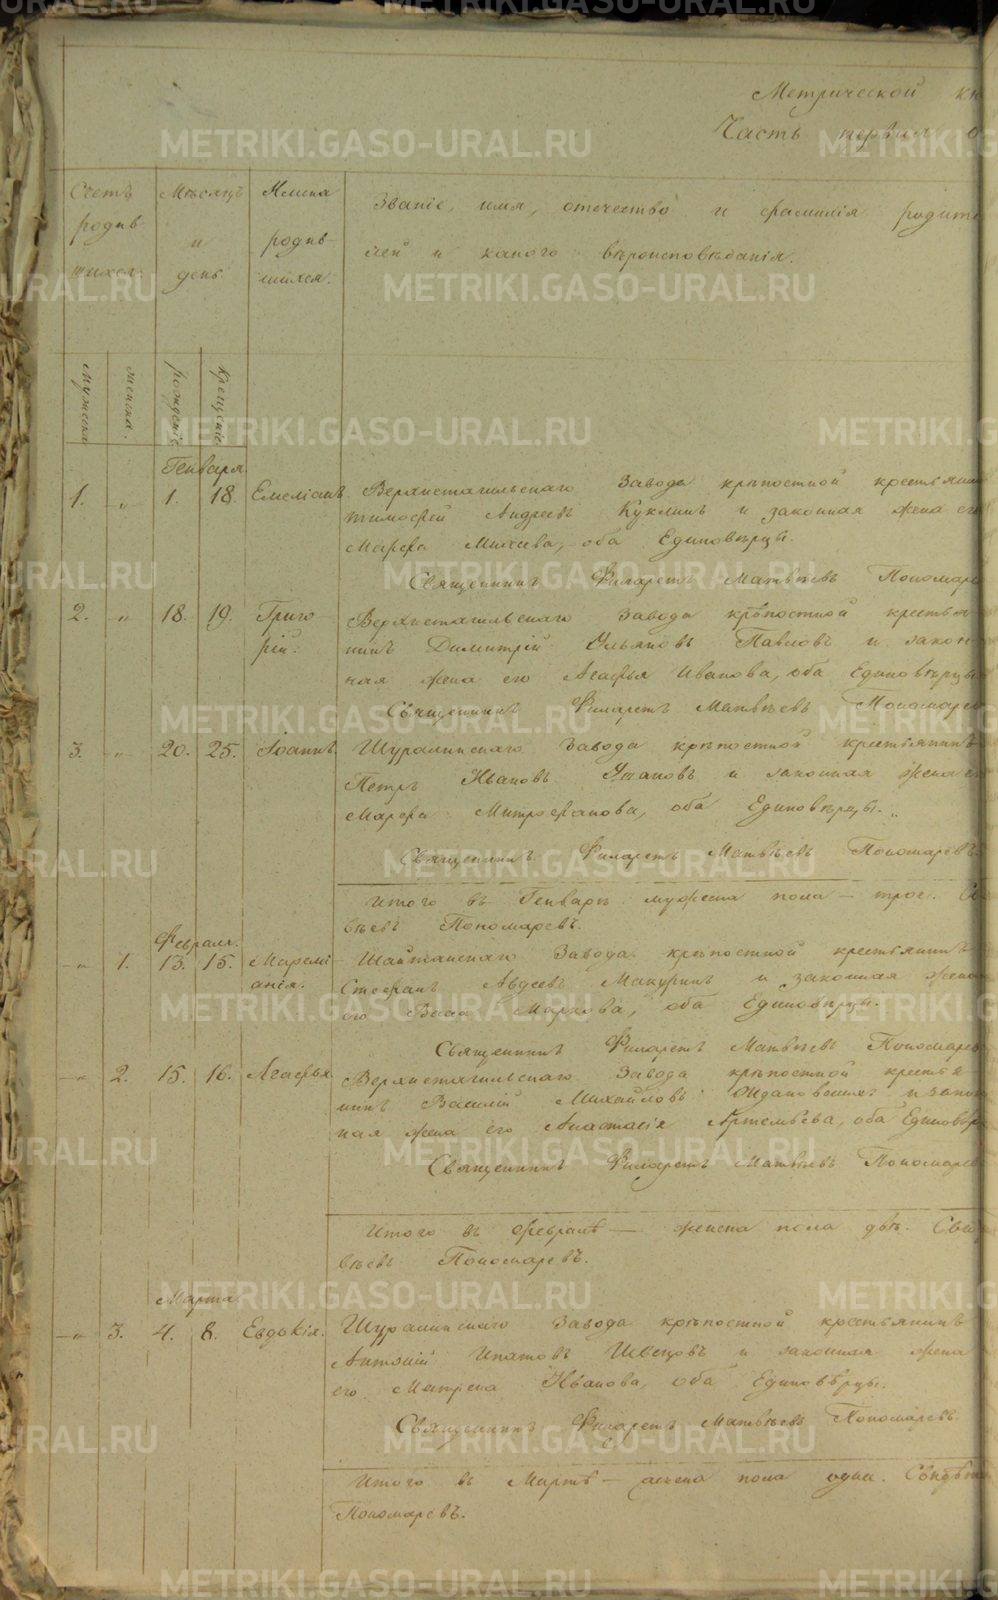 Метрической кн
Часть первая о
Счетъ родив шихся.
Мѣсяцъ и день
Имена родив- шихся.
Званіе, имя, отечество и фамилія родите
лей и какого вѣроисповѣданія.
мужеска
женска.
рожденіе
крещеніе
Генваря
1. „ 1. 18. Емеліанъ. Верхнетагильскаго Завода крѣпостной крестьянинъ
тимофей Андреевъ Куклинъ и законная жена его
Марфа Михеева, оба Единовѣрцы.
Священникъ Филаретъ Матвѣевъ Пономарев
2. „ 18. 19. Григо- Верхнетагильскаго Завода крѣпостной крестья-
рій. нинъ Димитрій Ульяновъ Павловъ и закон-
ная жена его Агафья Иванова, оба Единовѣрцы
Священникъ Филаретъ Матвѣевъ Пономарев
3. „ 20. 25. Іоаннъ. Шуралинскаго Завода крѣпостной крестьянинъ
Петръ Ивановъ и законная жена е
Марфа Митрофанова, оба Единовѣрцы. „
Священникъ Филаретъ Матвѣевъ Пономаревъ.
Итого въ Генварѣ мужеска пола — трое. С
вѣевъ Пономаревъ.
Февраля.
— „ 1. 13. 15. Маремі- Шайтанскаго Завода крѣпостной крестьянинъ
анія. Стефанъ Авдеевъ Макуринъ и законная жена
его Васса Маркова, оба Единовѣрцы.
Священникъ Филаретъ Матвѣевъ Пономарев
— „ 2. 15. 16. Агафья Верхнетагильскаго Завода крѣпостной крестья-
нинъ Василій Михайловъ и закон
ная жена его Анастасія Артемьева, оба Единовѣр
Священникъ Филаретъ Матвѣевъ Пономарев
Итого въ Февралѣ — женска пола двѣ. Сви
вѣевъ Пономаревъ.
Марта.
— „ 3. 4. 8. Евдокія. Шуралинскаго Завода крѣпостной крестьянинъ
Антоній Ипатовъ Швецовъ и законная жена
его Матрена Иванова, оба Единовѣрцы.
Священникъ Филаретъ Матвѣевъ Пономаревъ.
Итого въ Мартѣ — женска пола одна. Свидѣте
Пономаревъ.
METRIKI.GASO-URAL.RU